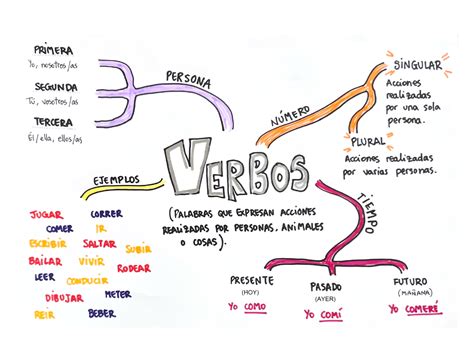 PRIMERA
Yo, nosotros/as
SEGUNDA
Tú, vosotros/as
TERCERA
Él/ella, ellos/as
PERSONA
NÚMERO
SINGULAR
Acciones
realizadas
por una sola
persona.
PLURAL
Acciones realizadas
por varias personas.
VERBOS
(PALABRAS QUE EXPRESAN ACCIONES
REALIZADAS POR PERSONAS, ANIMALES
O COSAS).
EJEMPLOS
JUGAR CORRER
COMER IR
ESCRIBIR SALTAR SUBIR
BAILAR VIVIR RODEAR
LEER CONDUCIR
DIBUJAR METER
REIR BEBER
TIEMPO
PRESENTE
(HOY)
Yo COMO
PASADO
(AYER)
Yo COMÍ
FUTURO
(MAÑANA)
Yo COMERÉ